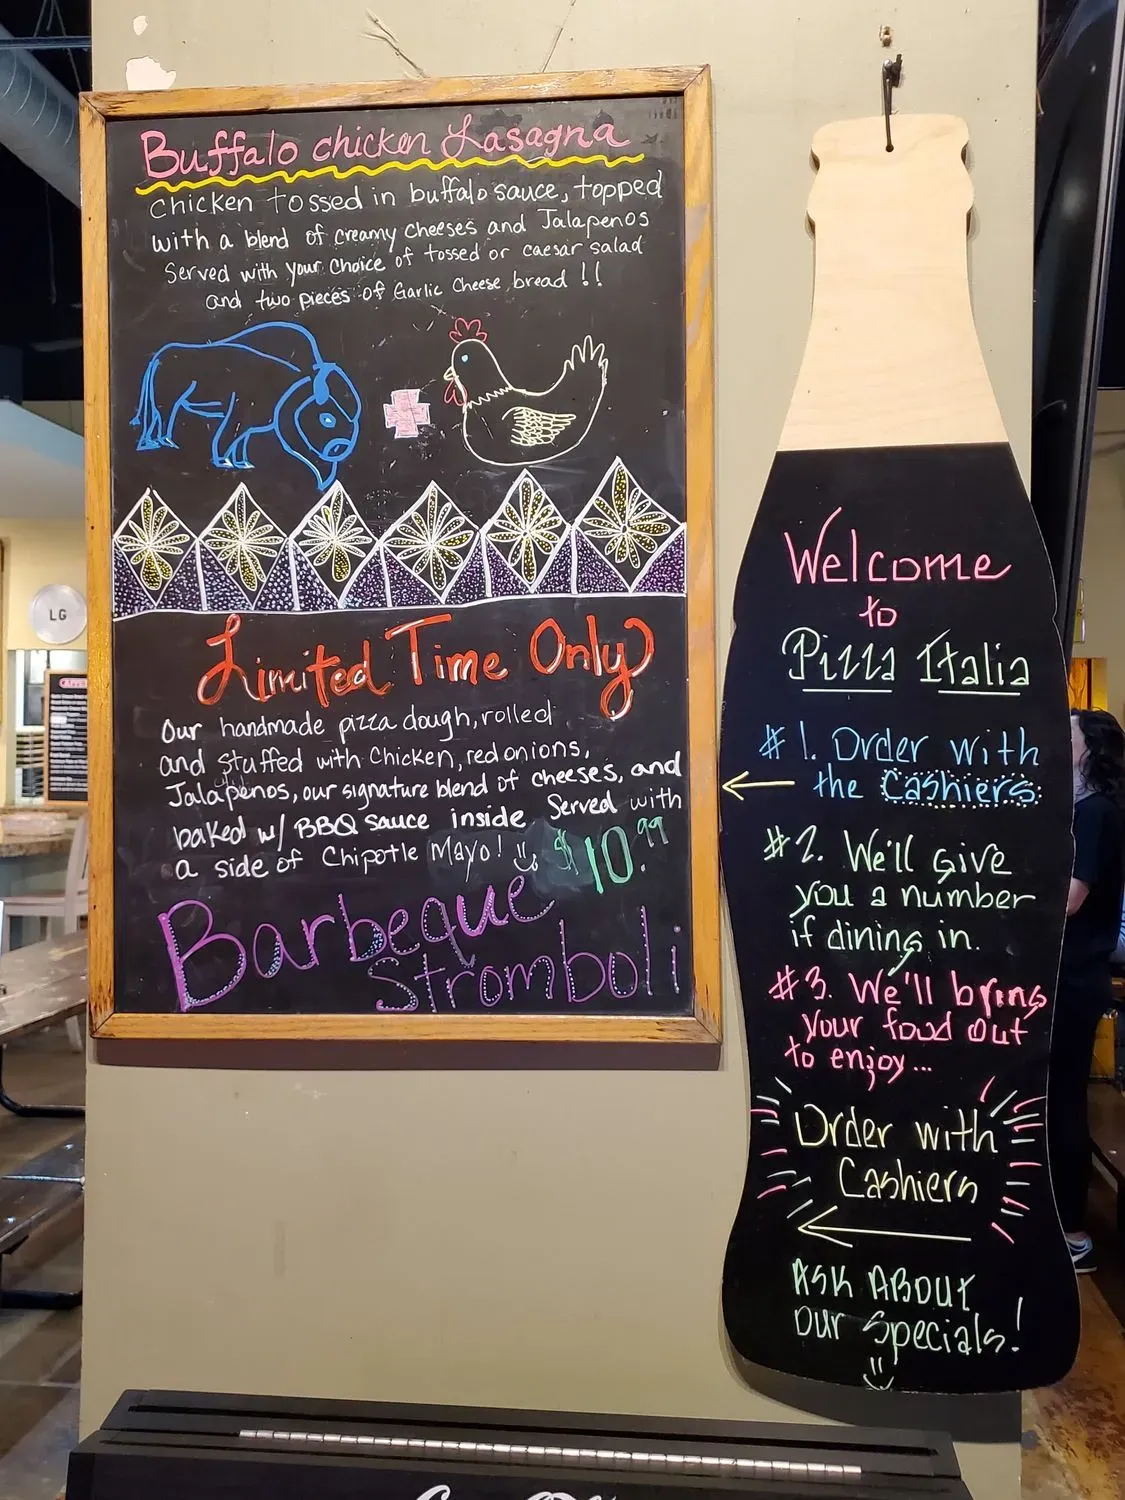 Buffalo chicken Lasagna
chicken tossed in buffalo sauce, topped
with a blend of creamy cheeses and Jalapenos
Served with your choice of tossed or caesar salad
and two pieces of Garlic Cheese bread !!
Limited Time Only
Our handmade pizza dough, rolled
and stuffed with Chicken, red onions,
Jalapenos, our signature blend of cheeses, and
baked w/ BBQ sauce inside. Served with
a side of Chipotle Mayo! $10.99
Barbeque
Stromboli
Welcome
to
Pizza Italia
#1. Order with
the Cashiers.
#2. We'll give
you a number
if dining in.
#3. We'll bring
your food out
to enjoy...
Order with
Cashiers
ASK ABOUT
our specials!
LG